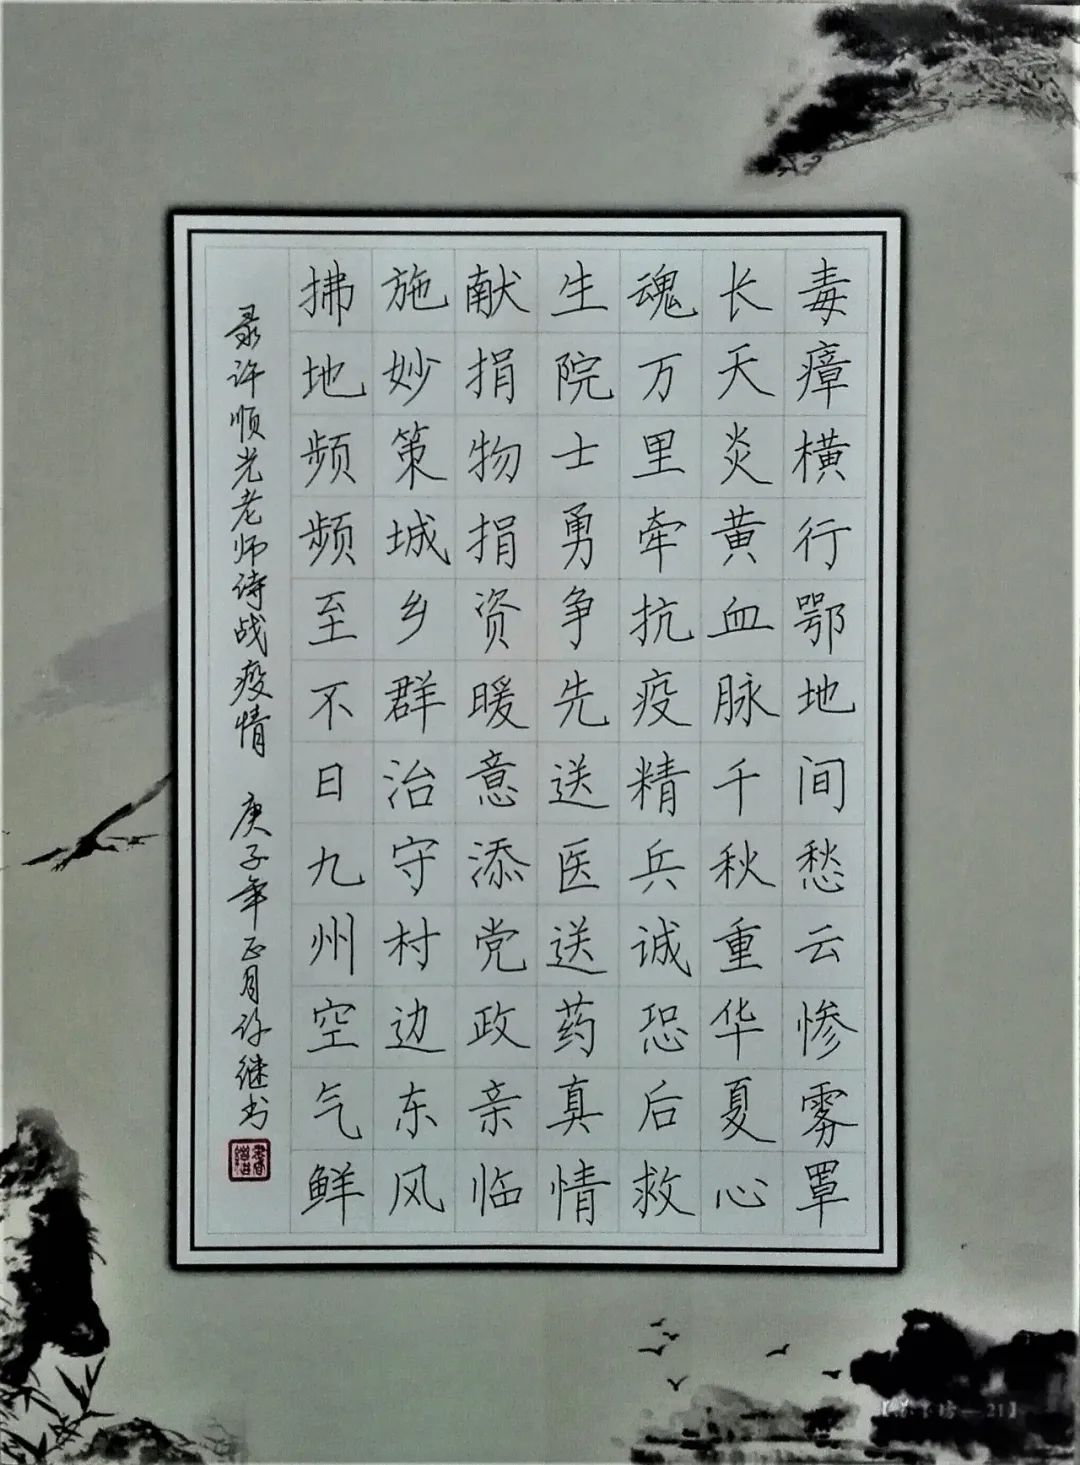 毒瘴横行鄂地间愁云惨雾罩
长天炎黄血脉千秋重华夏心
魂万里牵抗疫精兵诚恐后救
生院士勇争先送医送药真情
献捐物捐资暖意添党政亲临
施妙策城乡群治守村边东风
拂地频频至不日九州空气鲜
录许顺光老师诗战疫情 庚子年正月许继书